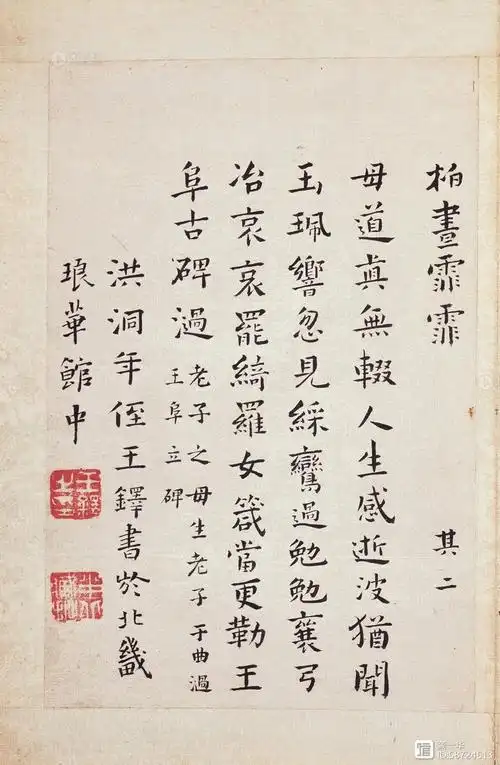 柏晝霏霏
其二
毋道眞無輟人生感逝波猶聞
玉珮響忽見綵鸞過勉勉襄弓
冶哀哀罷綺羅女箴當更勒王
阜古碑過
老子之毋生老子于曲過
王阜立碑
洪洞年侄王鐸書於北畿
琅華館中